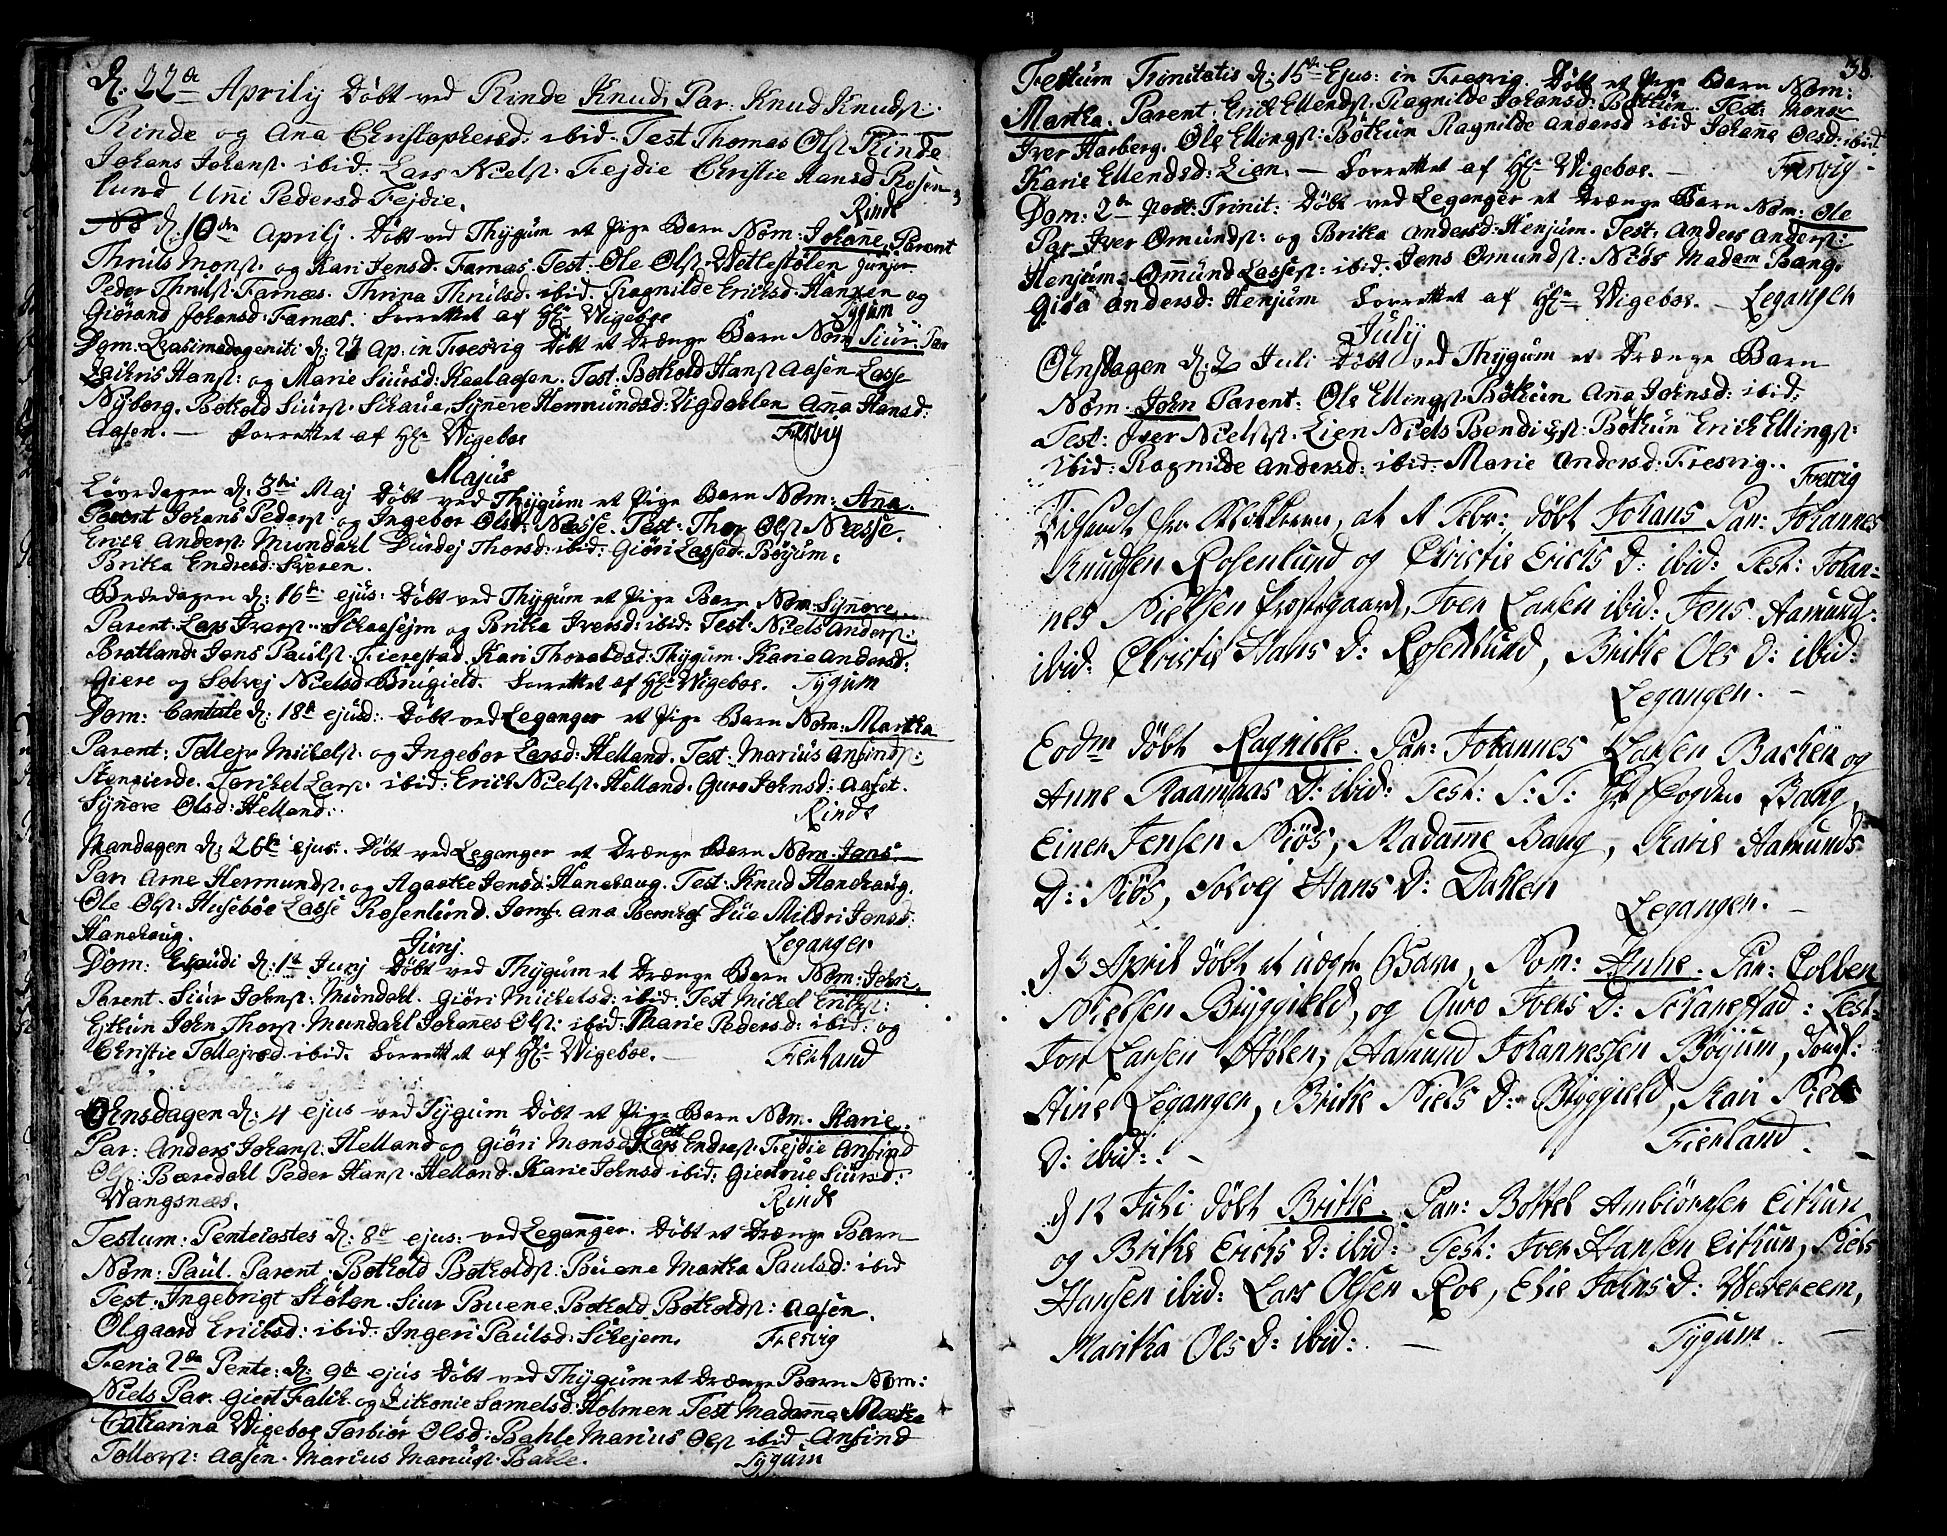 d: 22de Aprily Døbt ved Rinde Knud, Par: Knud Knudst:
Rinde og Aña Christophersd: ibid. Test Thomas Olst Rinde
Johans Johanst. ibid: Lars Nielst. Fejdie Christie Hansd Rosen
lund Uñi Pedersd Fejdie. Rinde
d: 10de Aprilj. Døbt ved Thygum et Pige Barn Nom: Johañe. Parent
Thruls Monst. og Kari Jensd. Farnæs. Test: Ole Olst. Wetlestølen Junior
Peder Thrulst. Farnæs. Thrina Thrulsd. ibid. Ragnilde Ericksd. Hanzen og
Giørand Johansd: Farnæs. Forrettet af Hr: Wigeboe Tygum
Dom: Qvasimodogeniti d: 27 Ap: in Fresvig Døbt et Drænge Barn Nom Siur: Par
Zachris Hanst: og Marie Siursd: Kaalaasen. Test. Bothold Hanst Aasen Lasse
Nyborg. Bothold Siurst. Schaue, Syñere Hermundsd: Vigdahlen Aña Hansd:
Aasen. — Forrettet af Hr: Wigeboe Fresvig
Majus
Løverdagen d: 3die Maj Døbt ved Thygum et Pige Barn Nom: Aña.
Parent Johans Pederst: og Ingebor Olsd: Næsse. Test: Thor Olst Næsse.
Erich Anderst: Mundahl Durdej Thorsd: ibid: Giøri Lassed. Bøyum.
Britha Endresd: Sveren.
Bededagen d: 16de ejus: Døbt ved Thygum et Pige Barn Nom: Syñeve.
Parent. Lars Iverst. Schaasejm og Britha Iversd: ibid: Test. Niels Anderst:
Bratland. Jens Paulst. Fierestad. Kari Thoraldsd. Thygum. Karie Andersd:
Giere og Solvej Nielsd Brugield. Forrettet af Hr: Wigeboe. Tygum
Dom: Cantate d: 18de ejusd: Døbt ved Leganger et Pige Barn Nom: Martha
Parent: Tollejv Michelst. og Ingebor Larsd: Helland. Test. Marius Ansindst:
Stengierde. Torchel Larst. ibid: Erich Nielst. Helland. Guro Johnsd: Aaset.
Syñøve Olsd: Helland: Rinde
Mandagen d: 26de ejus: Døbt ved Leganger et Drænge Barn Nom. Jens.
Par: Arne Hermundst. og Agaathe Jensd: Hanehaug. Test. Knud Hanehaug.
Ole Olst. Husebøe Lasse Rosenlund. Jomfr. Ana Due Mildri Jensd:
Hanehaug. Leganger
Junj
Dom: Exaudi d: 1te Junj Døbt ved Thygum et Drænge Barn Nom: John.
Parent. Siur Johnst: Mundahl. Giøri Michelsd: ibid: Test Michel Erichst:
Ethun John Thorst. Mundahl Johañes Olst: ibid: Marie Pedersd: ibid: og
Christie Tollejvsd. ibid. Forrettet af Hr: Wigeboe. — Fierland
Onsdagen d: 4 ejus ved Tygum Døbt et Pige Barn Nom: Karie.
Par: Anders Johanst: Helland og Giøri Monsd. Test Lars Endrest. Fejdie Ansind
Olst. Bæredahl Peder Hanst. Helland. Karie Johnsd ibid: Giertrue Siursd:
Wangsnæs. Rinde
Festum: Pentecostes d: 8de ejus: ved Leganger. Døbt et Drænge Barn
Nom: Paul. Parent. Bothold Botholdst: Buene Martha Paulsd: ibid
Test: Ingebrigt Stølen. Siur Buene. Bothold Botholdst: Aasen.
Olgaard Erichsd: ibid: Ingeri Paulsd: Schejem. Fresvig
Feria 2da Pente: d: 9de ejus Døbt ved Thygum et Drænge Barn Nom:
Niels Par. Giert Falch og Zithonie Samelsd: Holmen. Test Madame Mætha
Catharina Wigeboe Torbiør Olsd: Bahle Marius Olst ibid Ansind
Tollevst: Aasen. Marius Mariust. Bahle. Tygum
38.
Festum Trinitatis d: 15de Ejus: in Fresvig. Døbt et Pige Barn Nom:
Martha. Parent. Erich Ellendst: Ragnilde Johansd: Bøthun. Test: Mons
Iver Harberg. Ole Ellingst: Bøthun Ragnilde Andersd ibid Johañe Olsd: ibid
Karie Ellendsd: Lien. — Forrettet af Hr: Wigeboe. — Fresvig
Dom: 2da Post: Trinit: Døbt ved Leganger et Drænge Barn Nom: Ole
Par Iver Omundst: og Britha Andersd: Henjum. Test. Anders Anderst:
Henjum. Omund Lassest: ibid: Jens Omundst: Niøs Madam Bang.
Gisa Andersd: Henjum Forrettet af Hr: Wigeboe. — Leganger
July
Onstagen d: 2 Juli Døbt ved Thygum et Drænge Barn
Nom. John Parent: Ole Ellingst. Bøthun Aña Johnsd: ibid:
Test: Iver Nielsst. Lien Niels Bendixst: Bøthun Erich Ellingst:
ibid: Ragnilde Andersd: ibid: Marie Andersd: Fresvig. Fresvig
at d Febr: døbt Johans Par: Johannes
Knudsen Rosenlund og Christie Erichs D: ibid: Test: Johan-
nes Nielsen Prostegaard, Iver Larsen ibid: Jens Aamunds:
ibid: Christie Hans D: Rosenlund, Britte Ols D: ibid:
Leganger. —
Eodm døbt Ragnille. Par: Johannes Larsen Backen og
Anne Raamaas D: ibid: Test: S: T: Hr Fogden Bang,
Einer Jensen Niøs, Madame Bang, Karie Aamunds
D: Niøs, Solvej Hans D: Dahlen
Leganger. —
d 3 April døbt et uægte Barn, Nom: Anne. Par: Colben
Nielsen Bryggield, og Guro Ivers D: Schanestad: Test:
Tor Larsen Hølen, Aamund Johannessen Bøyum, Jomf:
Stine Leganger, Britte Niels D: Bryggield, Kari Niels
D: ibid: — Fierland. —
d 12 Juli døbt Britte. Par: Bottel Ambiørnsen Eithun
og Britte Erichs D: ibid: Test: Iver Hansen Eithun, Niels
Hansen ibid: Lars Olsen Roe, Elie Johns D: Wetereem,
Maritha Ols D: ibid: — Tygum. —